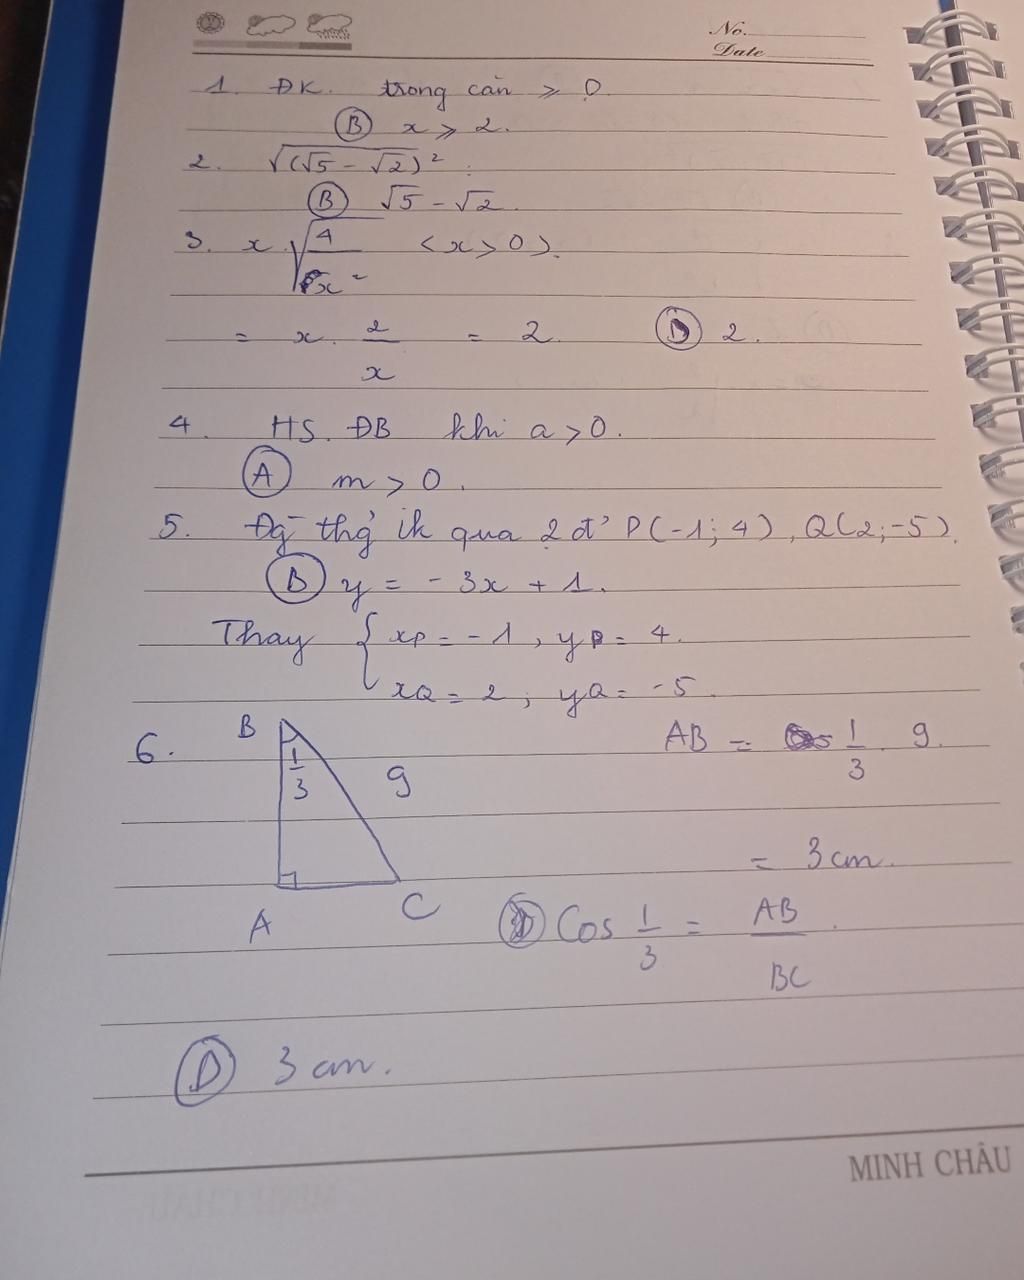 No.
Date
1. ĐK. trong căn ⩾ 0.
Ⓑ x ⩾ 2.
2. √(√5 - √2)² :
Ⓑ √5 - √2.
3. x.√(4/x²) (x > 0).
= x. 2/x = 2. Ⓓ 2.
4. HS. ĐB khi a > 0.
Ⓐ m > 0.
5. qua 2 đ' P(-1; 4), Q(2; -5).
Ⓑ y = - 3x + 1.
Thay { xP = - 1, yP = 4.
xQ = 2, yQ = -5.
6. B 1/3 9 A C
AB = 1/3. 9.
= 3 cm.
Cos 1/3 = AB/BC.
Ⓓ 3 cm.
MINH CHÂU